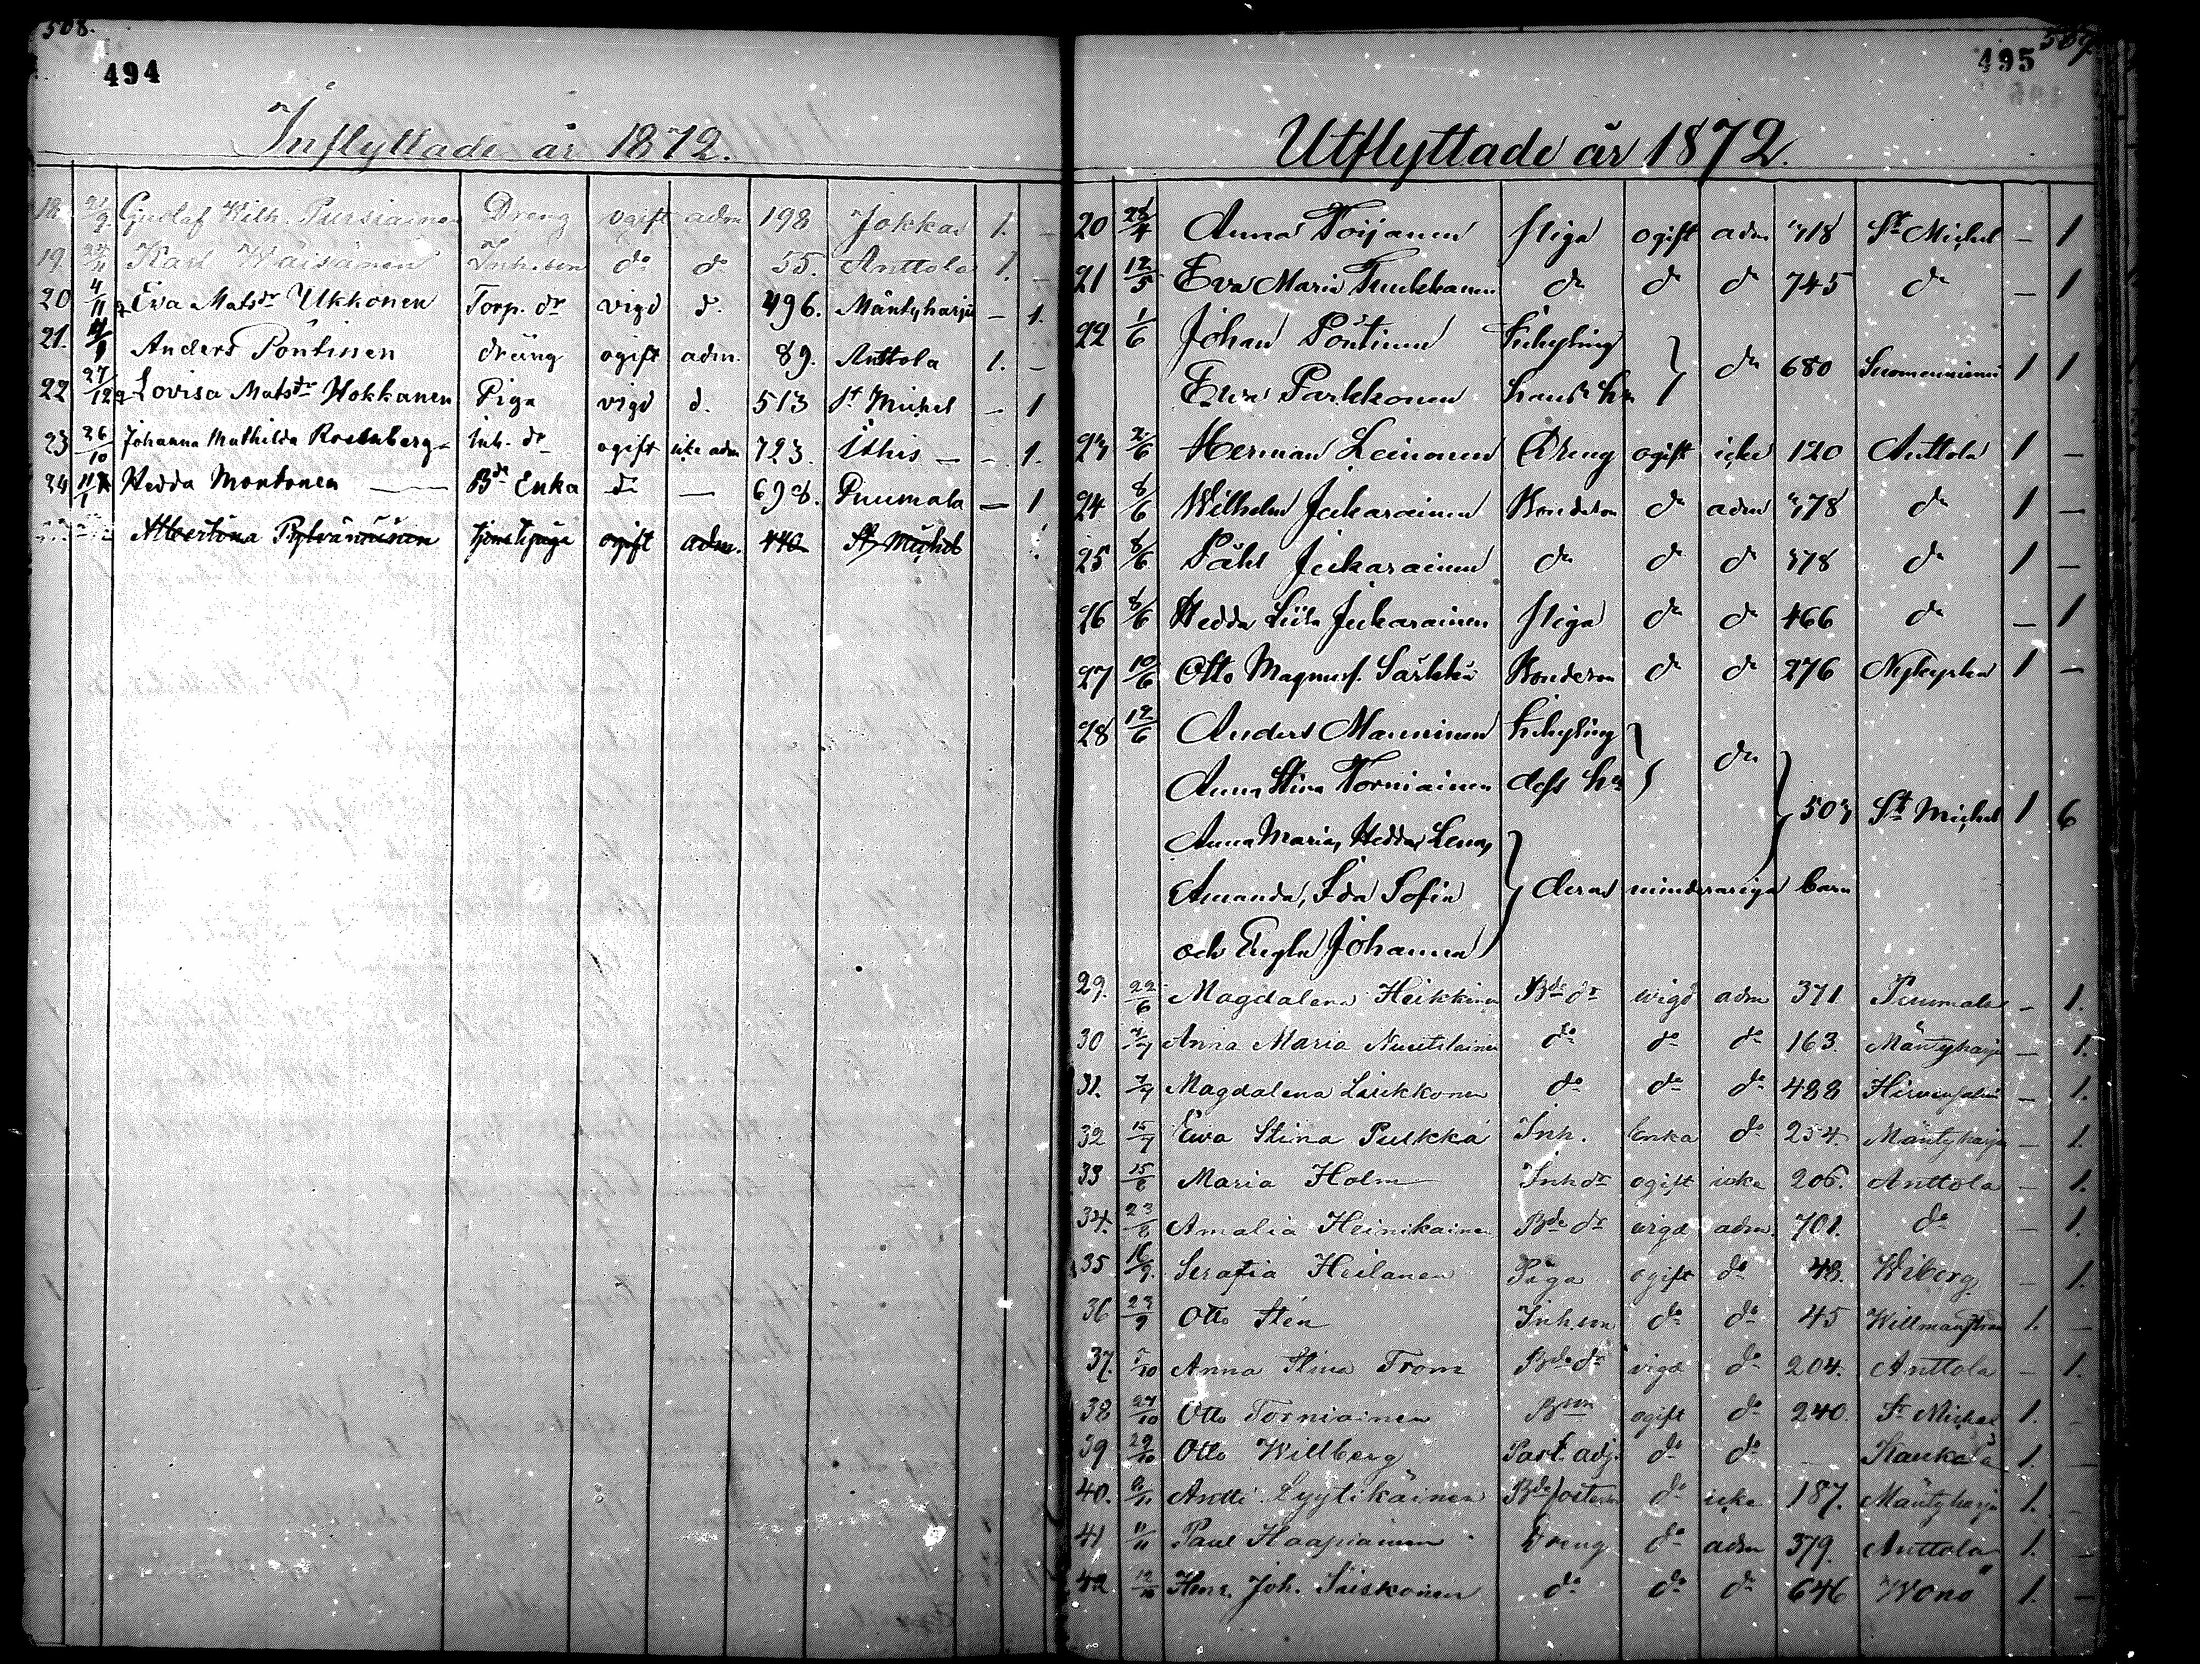 508.
494
Inflyttade år 1872.
18. 21/9 Gustaf Wilh. Pursiainen Dreng ogift adm 198 Jokkas 1. –
19. Karl Wäisänen Inh.son do do 55. Anttola 1. –
20 4/11 Eva Matsdr Ukkonen Torp. dr vigd d. 496. Mäntyharju – 1.
21. Anders Pöntinen dräng ogift adm. 89. Anttola 1. –
22 27/12 Lovisa Matsdr Hokkanen Piga vigd d. 513 St Michel – 1
23 26/10 Johanna Mathilda Rosenberg inh. dr ogift icke adm 723. Ithis – – 1.
24 11/1 Hedda Montonen Bde Enka do — 698. Puumala – 1
Albertina Pylvänäinen tjenstepiga ogift adm. 440 St Michel
495
Utflyttade år 1872.
20 Anna Toijanen piga ogift adm 718 St Michel – 1
21 12/5 Eva Maria Tuukkanen do do do 745 do – 1
22 1/6 Johan Pöntinen Inhysing
Elin Parkkonen hans h. do 680 Suomenniemi 1 1
23 2/6 Herman Leinonen Dreng ogift icke 120 Anttola 1 –
24 8/6 Wilhelm Jukarainen Bondeson do adm 478 do 1 –
25 8/6 Påhl Jukarainen do do do 478 do 1 –
26 8/6 Hedda Liisa Jukarainen piga do do 466 do – 1
27 10/6 Otto Magnus Särkkä Bondeson do do 276 Nykyrka 1 –
28 12/6 Anders Manninen Inhysing
Anna Stina Torniainen dess h. do
507 St Michel 1 6
Anna Maria, Hedda Lena,
Amanda, Ida Sofia deras minderariga barn
och Engla Johanna
29. 22/6 Magdalena Heikkinen Bde dr wigd adm 371 Puumala – 1.
30 7/7 Anna Maria Nuutilainen do do do 163. Mäntyharju – 1.
31. 7/7 Magdalena Liukkonen do do do 488 Hirvensalmi – 1.
32 15/7 Ewa Stina Pulkka Inh. Enka do 254. Mäntyharju – 1.
33 15/8 Maria Holm Inh dr ogift icke 206. Anttola – 1.
34. 23/8 Amalia Heinikainen Bde dr vigd adm. 701. do – 1.
35 16/9. Serafia Heilanen Piga ogift do 48. Wiborg – 1.
36 23/9 Otto Sten Inh.son do do 45 Willmanstrand 1. –
37. 5/10 Anna Stina From Bde dr vigd do 204. Anttola – 1.
38 27/10 Otto Torniainen Bson ogift do 240. St Michel 1. –
39 29/10 Otto Willberg Past. adj. do do – Kaukola 1. –
40. Antti Lyytikäinen Bde fosterson do icke 187. Mäntyharju 1. –
41 11/11 Paul Haapiainen Dreng do adm 379. Anttola 1. –
42 Henr. Joh. Siiskonen do do do 646 Wonö 1. –